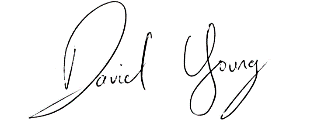 David Young